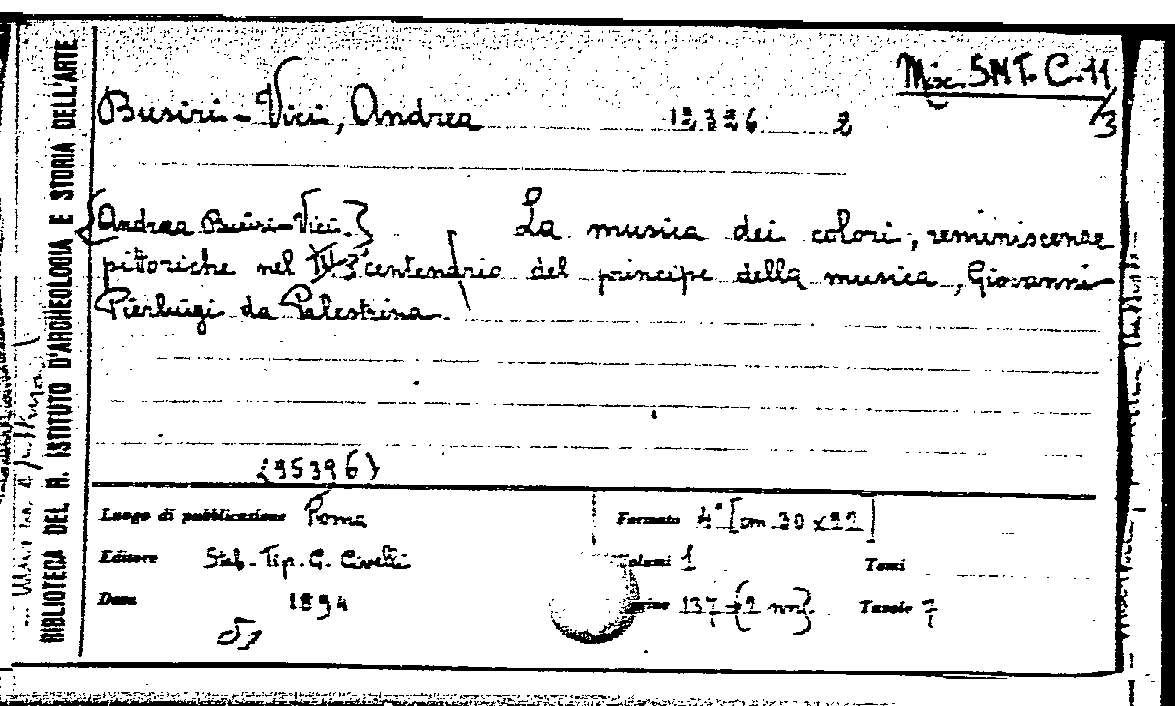 BIBLIOTECA DEL R. ISTITUTO D'ARCHEOLOGIA E STORIA DELL'ARTE
Misc. SMT. C. 11
/3
Busiri-Vici, Andrea 12326 2
{Andrea Busiri-Vici} La musica dei colori, reminiscenze
pittoriche nel 3° centenario del principe della musica, Giovanni
Pierluigi da Palestrina.
{95396}
Luogo di pubblicazione Roma
Formato 4° [cm. 30 x 22]
Editore Stab. Tip. G. Civelli
Volumi 1 Tomi
Data 1894
Pagine 137 + {2 nn} Tavole 7